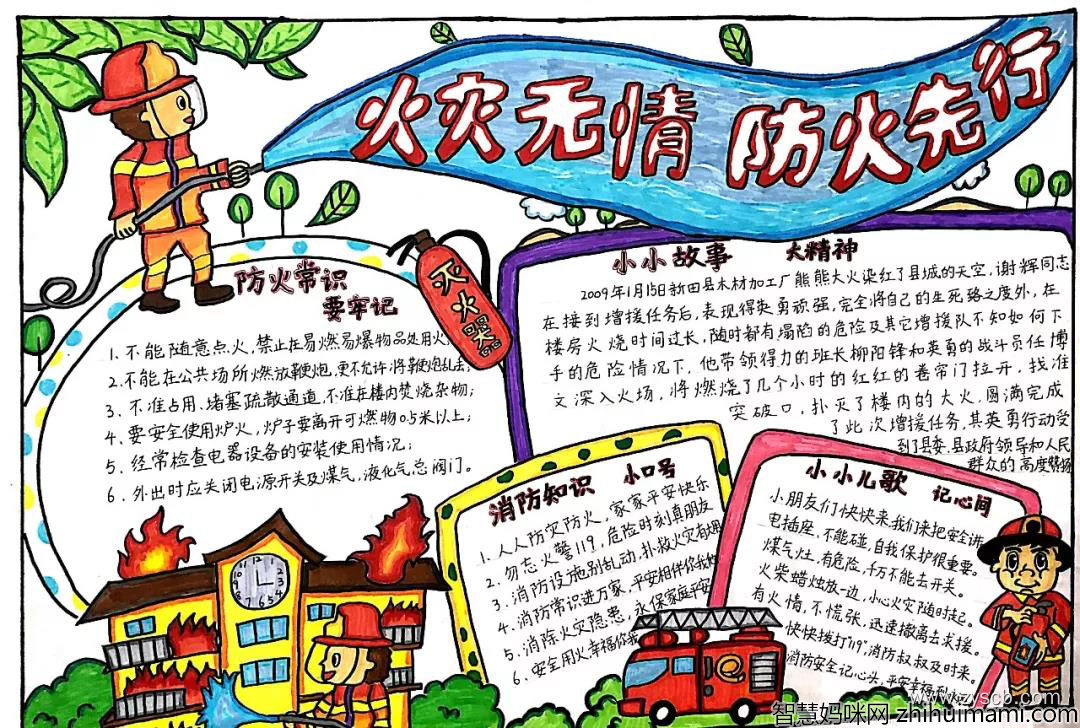 火灾无情 防火先行
灭火器
防火常识
要牢记
1、不能随意点火,禁止在易燃易爆物品处用火
2、不能在公共场所燃放鞭炮,更不允许将鞭炮乱丢;
3、不准占用、堵塞疏散通道,不准在楼内焚烧杂物;
4、要安全使用炉火,炉子要离开可燃物0.5米以上;
5、经常检查电器设备的安装使用情况;
6、外出时应关闭电源开关及煤气,液化气总阀门。
小小故事 大精神
2009年1月15日新田县木材加工厂熊熊大火染红了县城的天空,谢辉同志
在接到增援任务后,表现得英勇顽强,完全将自己的生死臵之度外,在
楼房火烧时间过长,随时都有塌陷的危险及其它增援队不知如何下
手的危险情况下,他带领得力的班长柳阳锋和英勇的战斗员任博
文深入火场,将燃烧了几个小时的红红的卷帘门拉开,找准
突破口,扑灭了楼内的大火,圆满完成
了此次增援任务,其英勇行动受
到县委、县政府领导和人民
群众的高度赞扬
消防知识 小口号
1、人人防灾防火,家家平安快乐
2、勿忘火警119,危险时刻真朋友
3、消防设施别乱动,扑救火灾有妙用
4、消防常识进万家,平安相伴你我他
5、消除火灾隐患,永保家庭平安
6、安全用火幸福你我
小小儿歌 记心间
小朋友们快快来我们来把安全讲
电插座,不能碰,自我保护很重要。
煤气灶,有危险,千万不能去开关。
火柴蜡烛放一边,小心火灾随时起。
有火情,不慌张,迅速撤离去求援。
快快拨打119,消防叔叔及时来。
消防安全记心头,平安幸福到
12 1 2 3 4 5 6 7 8 9 10 11
www.zyscb.com
智慧妈咪网 zhihuimami.com